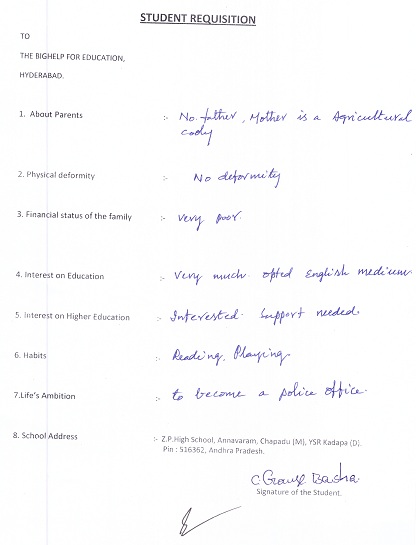 STUDENT REQUISITION
TO
THE BIGHELP FOR EDUCATION,
HYDERABAD.
1. About Parents :- No. father, Mother is a Agricultural
cooly
2. Physical deformity :- No deformity
3. Financial status of the family :- very poor.
4. Interest on Education :- Very much. opted English medium
5. Interest on Higher Education :- Interested. Support needed.
6. Habits :- Reading, Playing.
7.Life's Ambition :- to become a police office.
8. School Address :- Z.P.High School, Annavaram, Chapadu (M), YSR Kadapa (D).
Pin : 516362, Andhra Pradesh.
C Grouse Basha.
Signature of the Student.